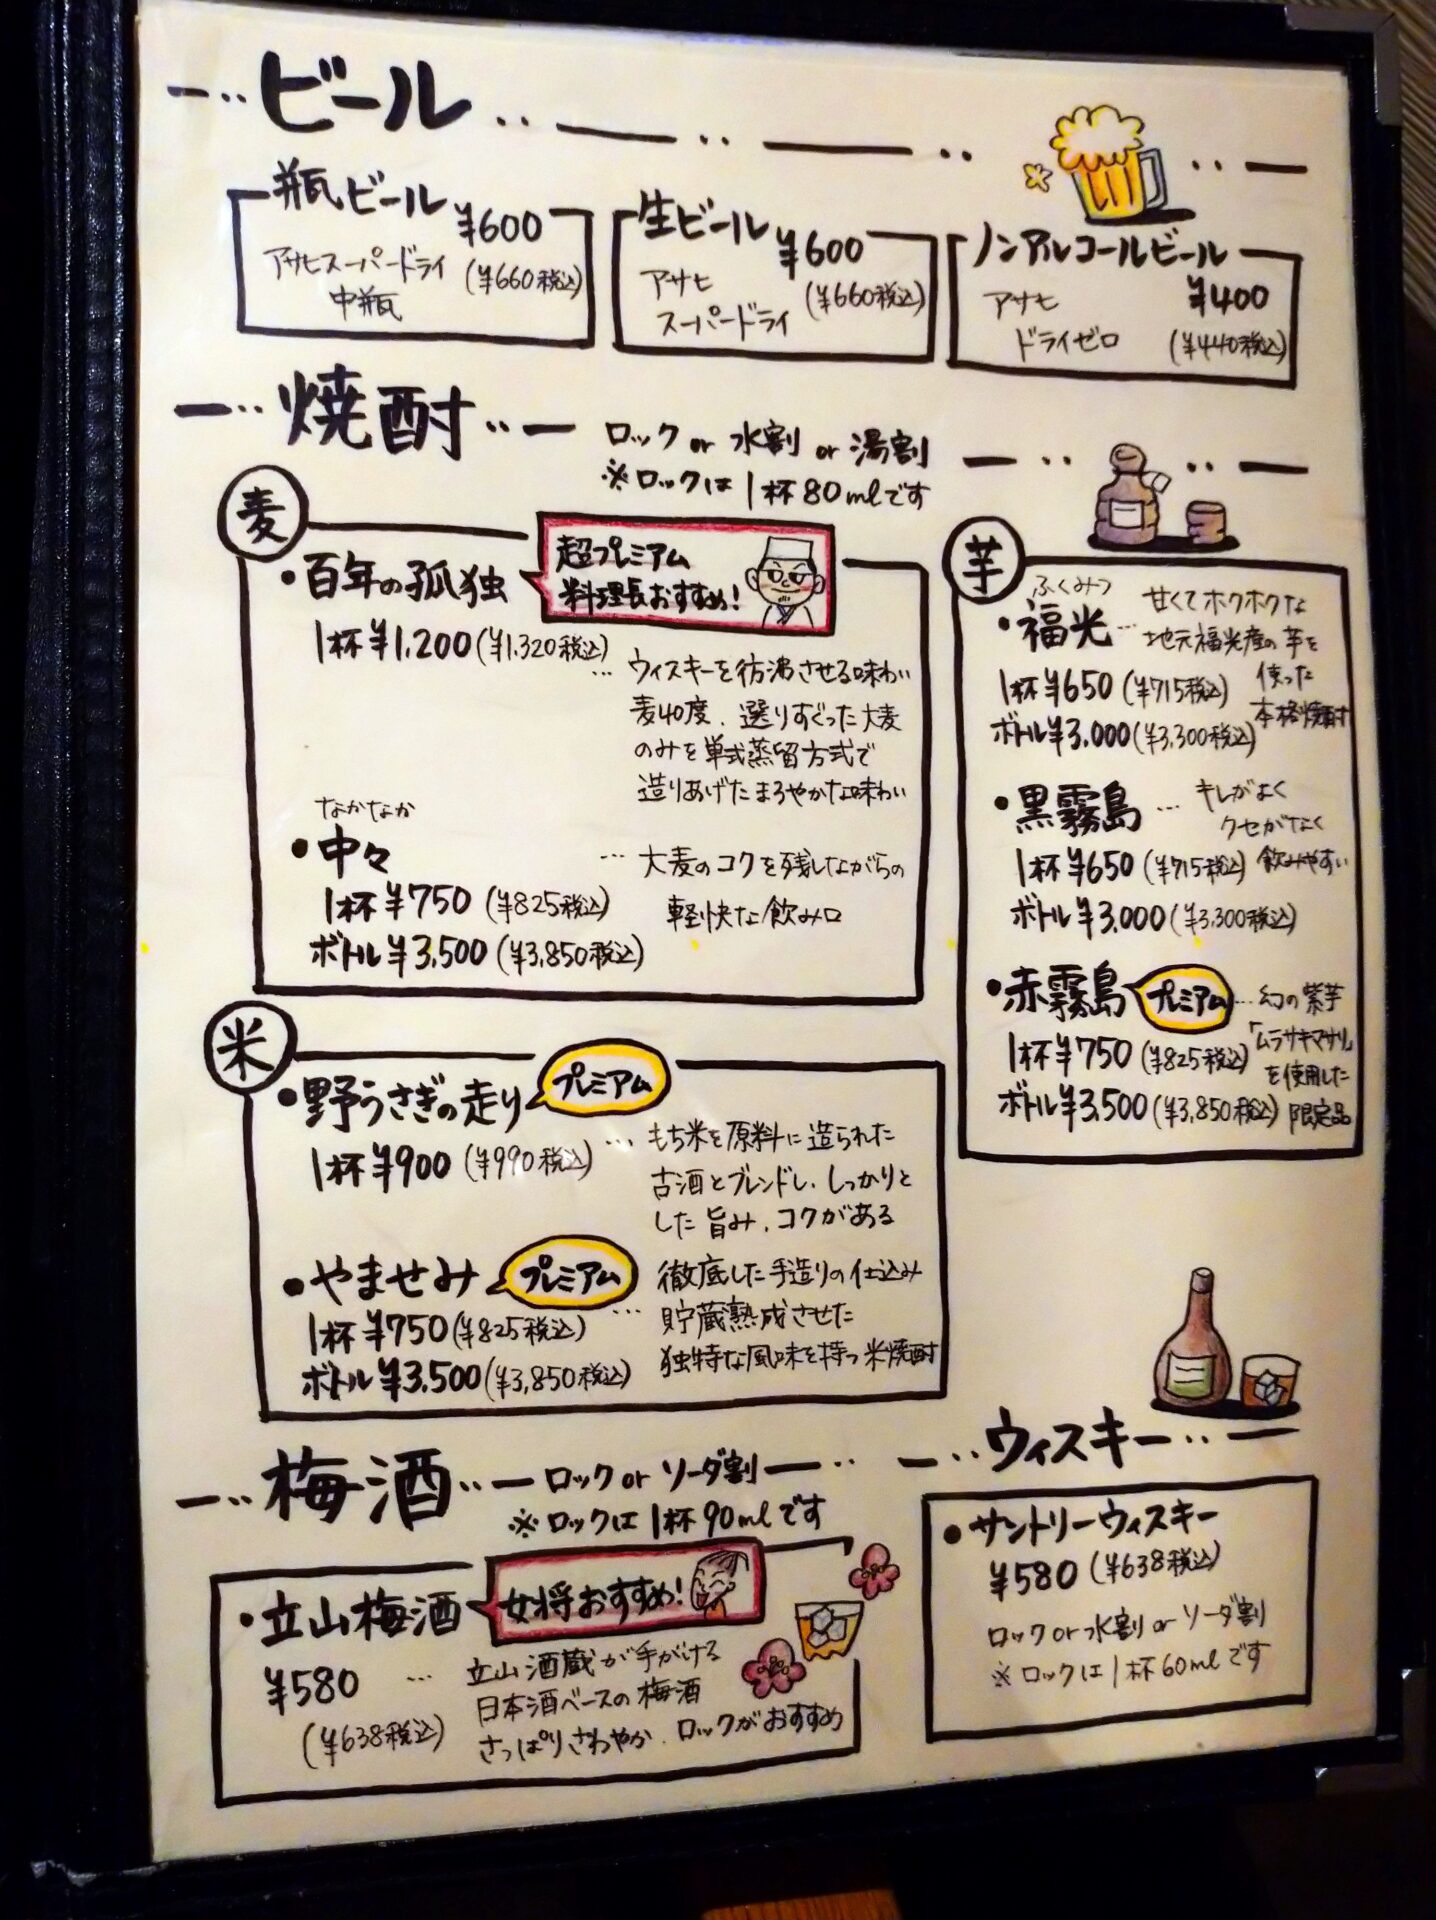 ビール
瓶ビール
¥600
アサヒスーパードライ
中瓶
(¥660税込)
生ビール
¥600
アサヒ
スーパードライ
(¥660税込)
ノンアルコールビール
¥400
アサヒ
ドライゼロ
(¥440税込)
焼酎
ロック or 水割 or 湯割
※ロックは1杯80mlです
麦
・百年の孤独
超プレミアム
料理長おすすめ!
1杯¥1,200(¥1,320税込)
…ウィスキーを彷沸させる味わい
麦40度、選りすぐった大麦
のみを単式蒸留方式で
造りあげたまろやかな味わい
なかなか
・中々
1杯¥750(¥825税込)
ボトル¥3,500(¥3,850税込)
…大麦のコクを残しながらの
軽快な飲み口
米
・野うさぎの走り
プレミアム
1杯¥900(¥990税込)
…もち米を原料に造られた
古酒とブレンドし、しっかりと
した旨み、コクがある
・やませみ
プレミアム
1杯¥750(¥825税込)
ボトル¥3,500(¥3,850税込)
…徹底した手造りの仕込み
貯蔵熟成させた
独特な風味を持つ米焼酎
芋
ふくみつ
・福光…
甘くてホクホクな
地元福光産の芋を
使った
本格焼酎
1杯¥650(¥715税込)
ボトル¥3,000(¥3,300税込)
・黒霧島…
キレがよく
クセがなく
飲みやすい
1杯¥650(¥715税込)
ボトル¥3,000(¥3,300税込)
・赤霧島
プレミアム
…幻の紫芋
「ムラサキマサリ」
を使用した
限定品
1杯¥750(¥825税込)
ボトル¥3,500(¥3,850税込)
梅酒
ロック or ソーダ割
※ロックは1杯90mlです
・立山梅酒
女将おすすめ!
¥580
(¥638税込)
…立山酒蔵が手がける
日本酒ベースの梅酒
さっぱりさわやか、ロックがおすすめ
ウィスキー
・サントリーウィスキー
¥580(¥638税込)
ロック or 水割 or ソーダ割
※ロックは1杯60mlです